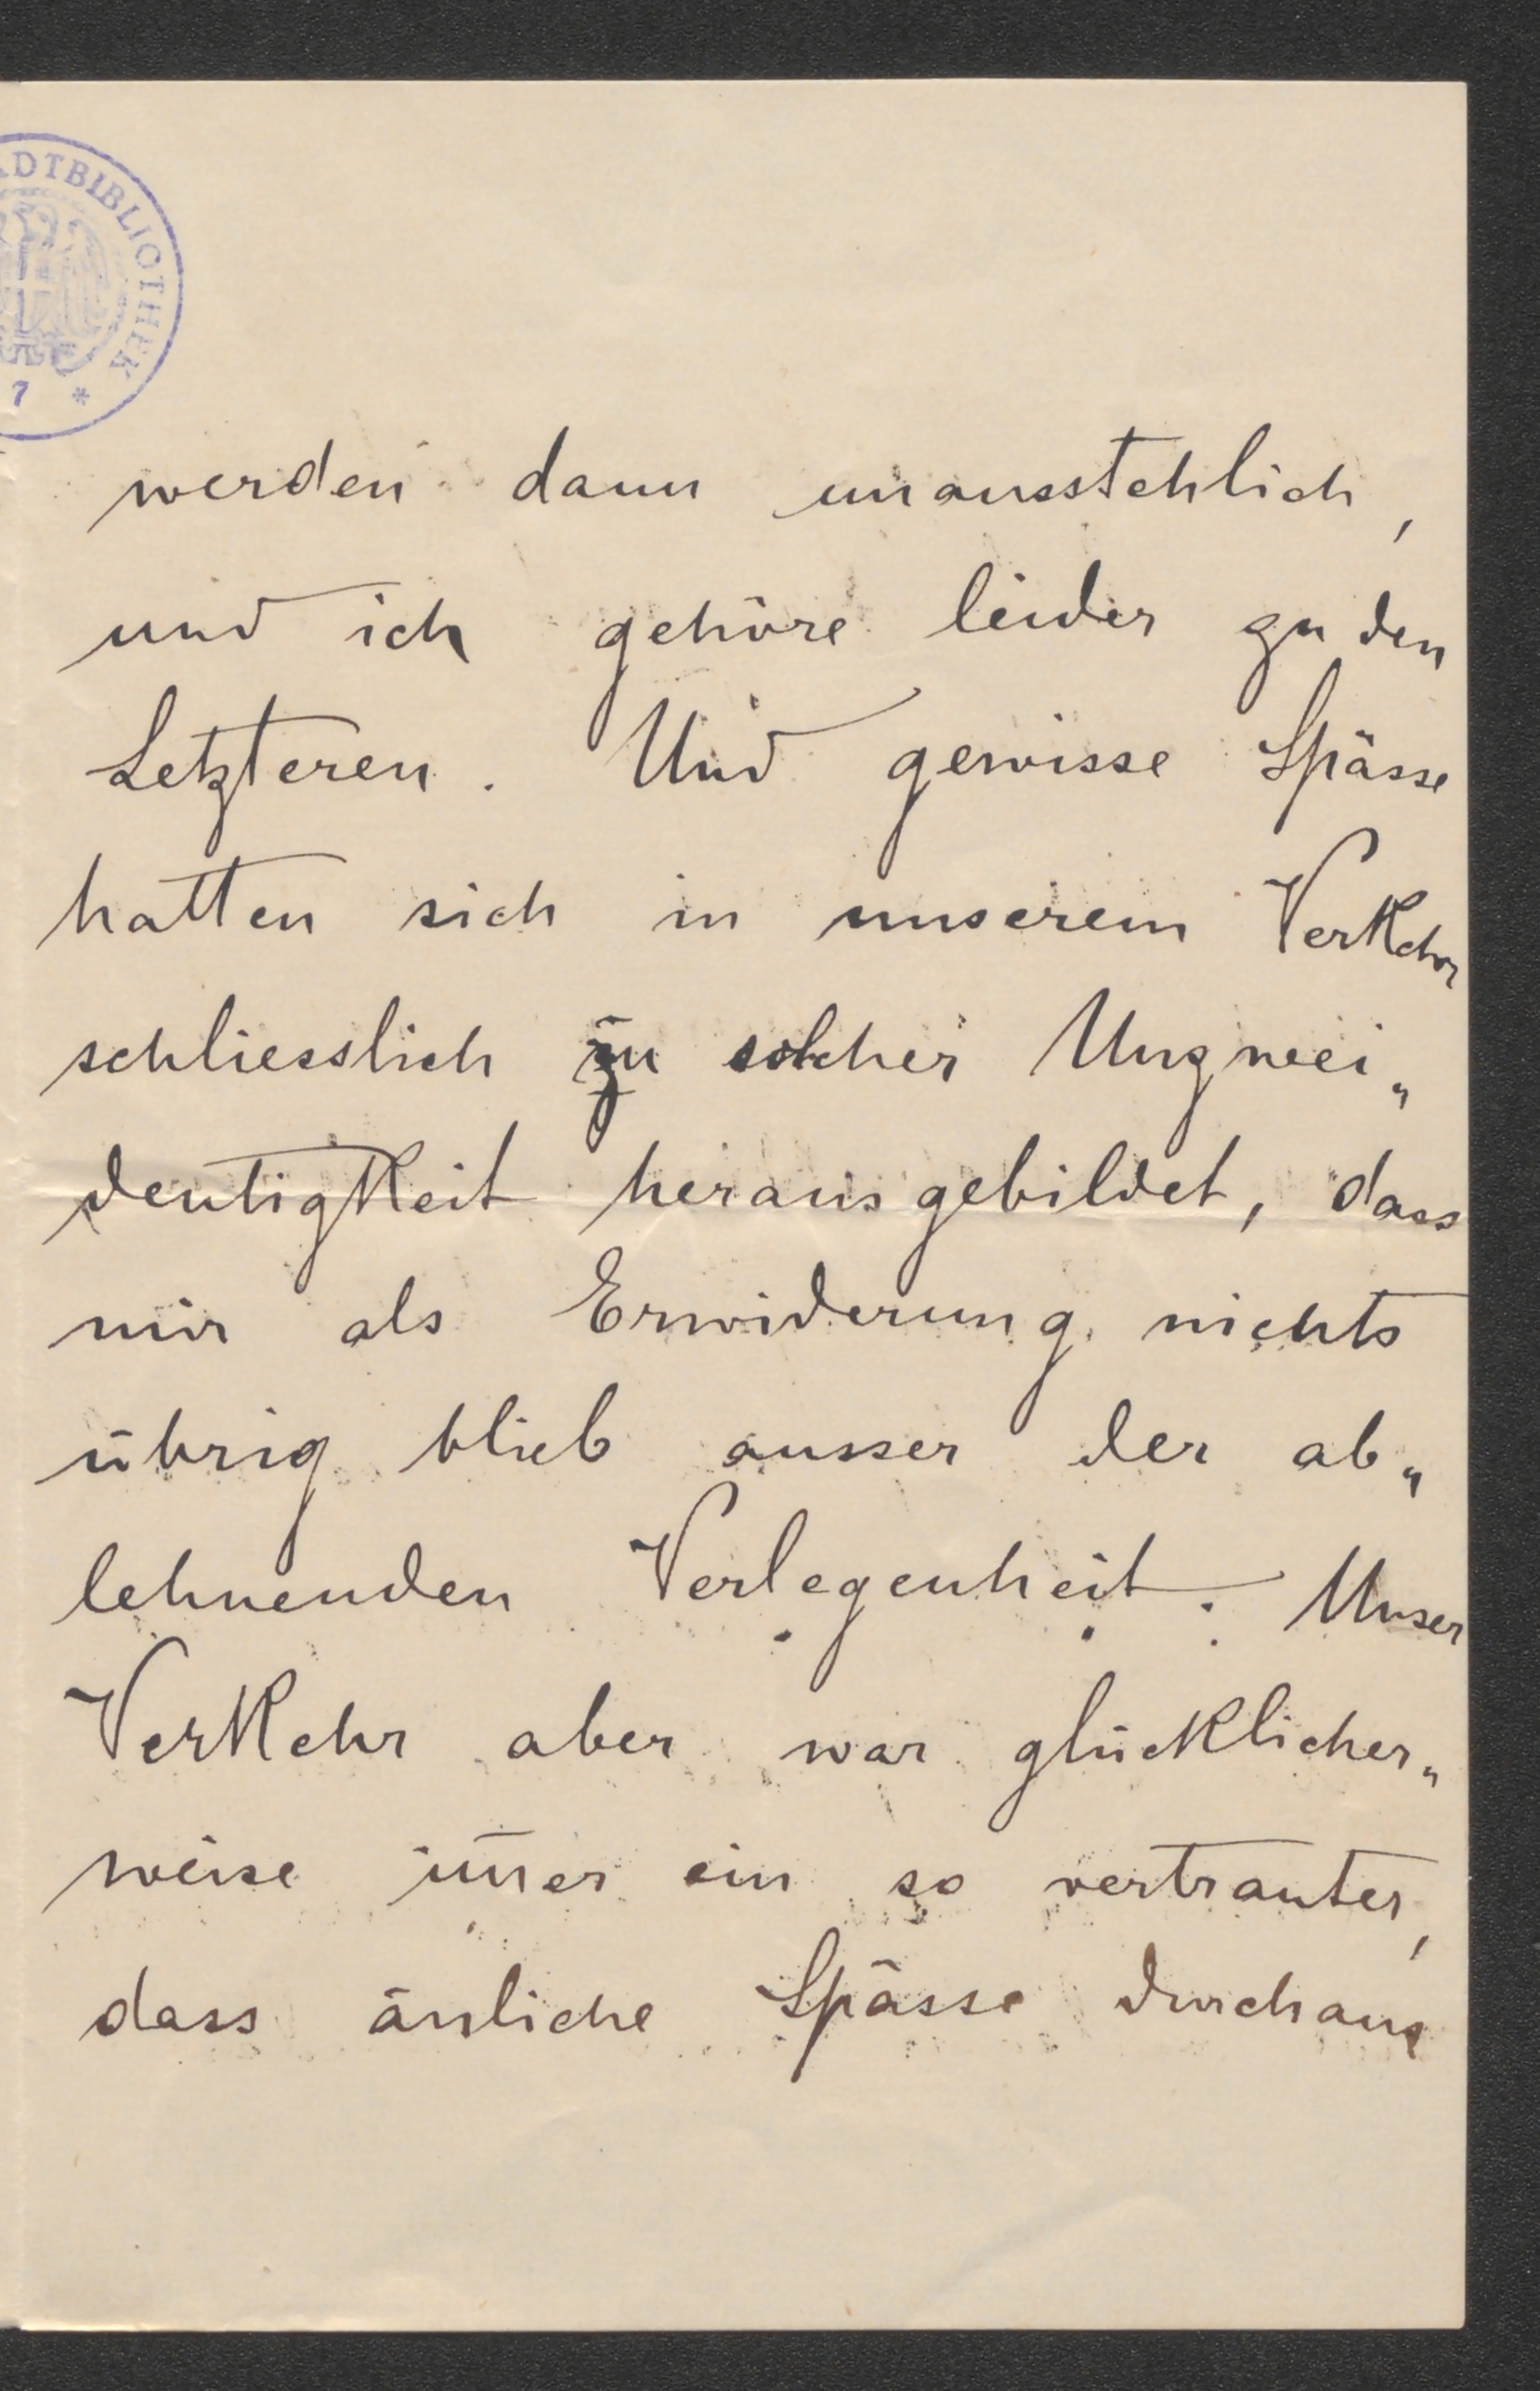 ADTBIBLIOTHEK
7 *
werden dann unausstehlich,
und ich gehöre leider zu den
Letzteren. Und gewisse Spässe
hatten sich in unserem Verkehr
schliesslich zu solcher Unzwei„
deutigkeit herausgebildet, dass
mir als Erwiderung nichts
übrig blieb ausser der ab„
lehnenden Verlegenheit. Unser
Verkehr aber war glücklicher„
weise im̅er ein so vertrauter,
dass änliche Spässe durchaus